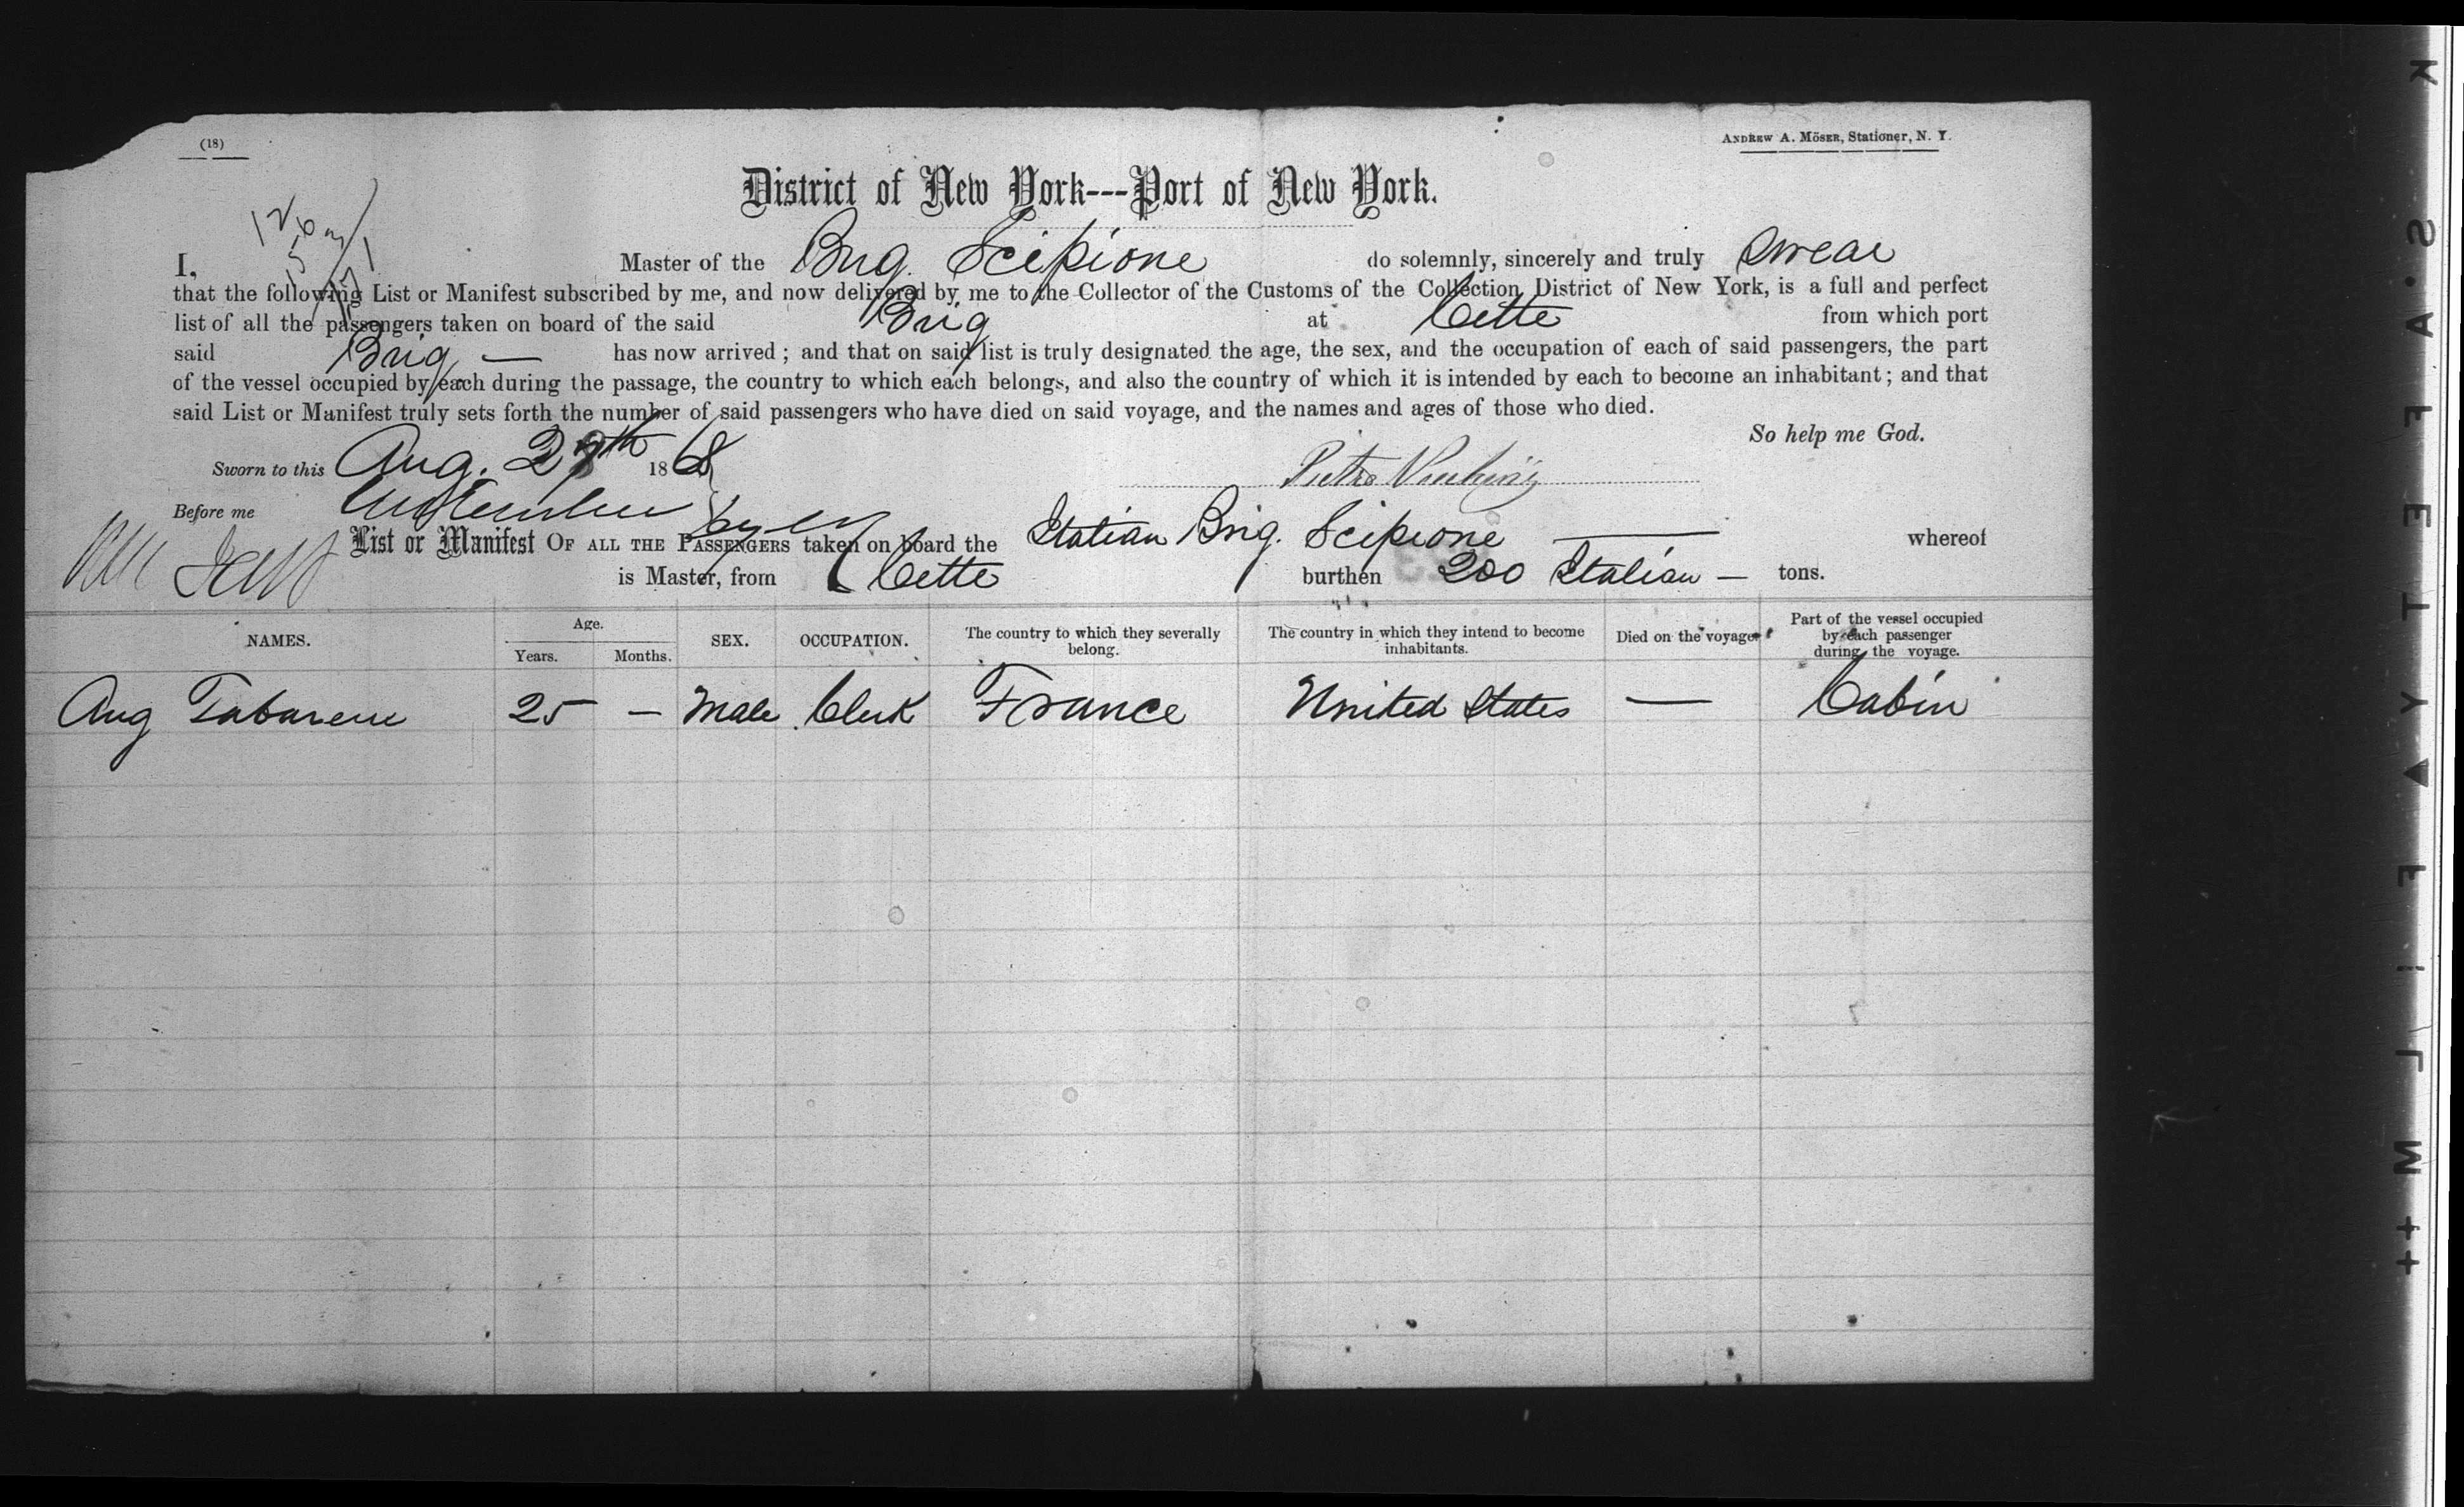 (18)
ANDREW A. MÖSER, Stationer, N. Y.
District of New York---Port of New York.
I, Master of the Brig. Scipione do solemnly, sincerely and truly swear
that the following List or Manifest subscribed by me, and now delivered by me to the Collector of the Customs of the Collection District of New York, is a full and perfect
list of all the passengers taken on board of the said Brig at Cette from which port
said Brig — has now arrived ; and that on said list is truly designated the age, the sex, and the occupation of each of said passengers, the part
of the vessel occupied by each during the passage, the country to which each belongs, and also the country of which it is intended by each to become an inhabitant ; and that
said List or Manifest truly sets forth the number of said passengers who have died on said voyage, and the names and ages of those who died.
So help me God.
Sworn to this Aug. 2 th 1868
Pietro
Before me
List or Manifest OF ALL THE PASSENGERS taken on board the Italian Brig. Scipione — whereof
is Master, from Cette burthen 200 Italian — tons.
NAMES. Age. Years. Months. SEX. OCCUPATION. The country to which they severally belong. The country in which they intend to become inhabitants. Died on the voyage. Part of the vessel occupied by each passenger during the voyage.
Aug 25 — Male Clerk France United States — Cabin